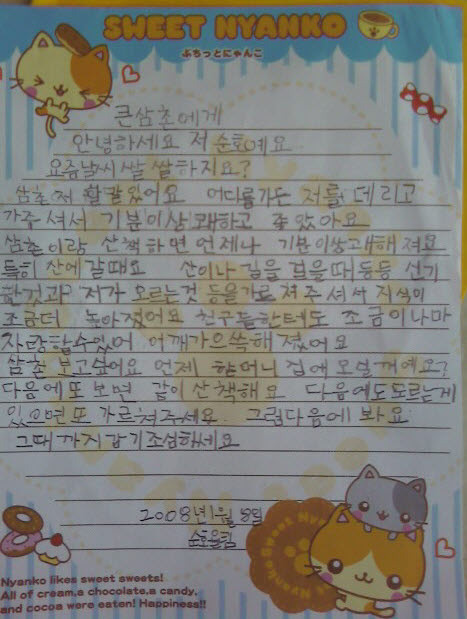 SWEET NYANKO
ぷちっとにゃんこ
큰삼촌에게
안녕하세요 저 순호예요
요즘날씨 쌀쌀하지요?
삼촌 저 할말있어요 어디를가든 저를 데리고
가주셔서 기분이상쾌하고 좋았아요
삼촌이랑 산책하면 언제나 기분이상쾌해져요
특히 산에 갈때요 산이나 길을 걸을때 등등 신기
한것과 저가 모르는것 등을 가르쳐주셔서 지식이
조금더 높아졌어요 친구들한테도 조금이나마
자랑할수있어 어깨가으쓱해졌어요
삼촌 보고싶어요 언제 할머니 집에 오실꺼예요?
다음에또 보면 같이산책해요 다음에도모르는게
있으면또 가르쳐주세요 그럼다음에 봐요
그때까지감기조심하세요
2008년 월 8일
순호올림
Nyanko likes sweet sweets!
All of cream,a chocolate,a candy,
and cocoa were eaten! Happiness!!